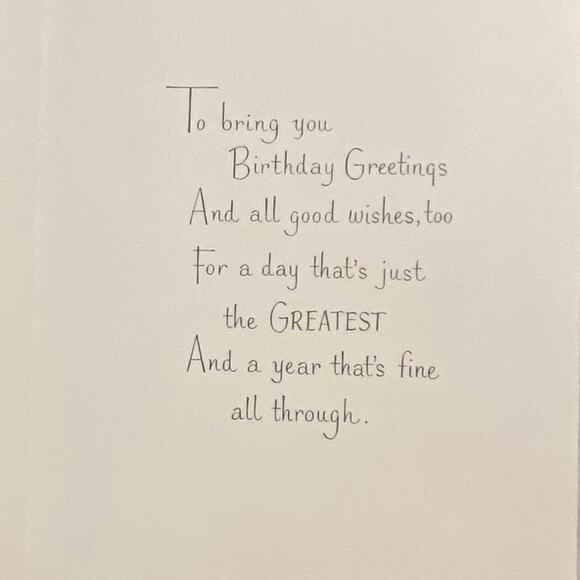 To bring you
Birthday Greetings
And all good wishes, too
For a day that's just
the GREATEST
And a year that's fine
all through.